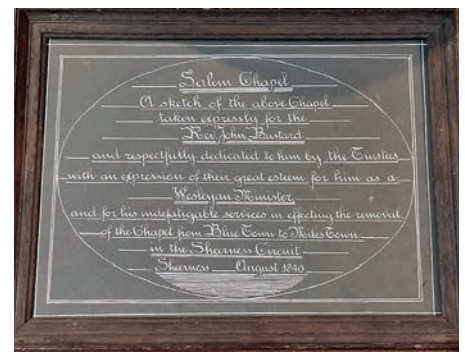 Salem Chapel
A sketch of the above Chapel
taken expressly for the
Rev. John Bustard
and respectfully dedicated to him by the Trustees
with an expression of their great esteem for him as a
Wesleyan Minister
and for his indefatigable services in effecting the removal
of the Chapel from Blue Town to Miles Town
in the Sheerness Circuit
Sheerness August 1840